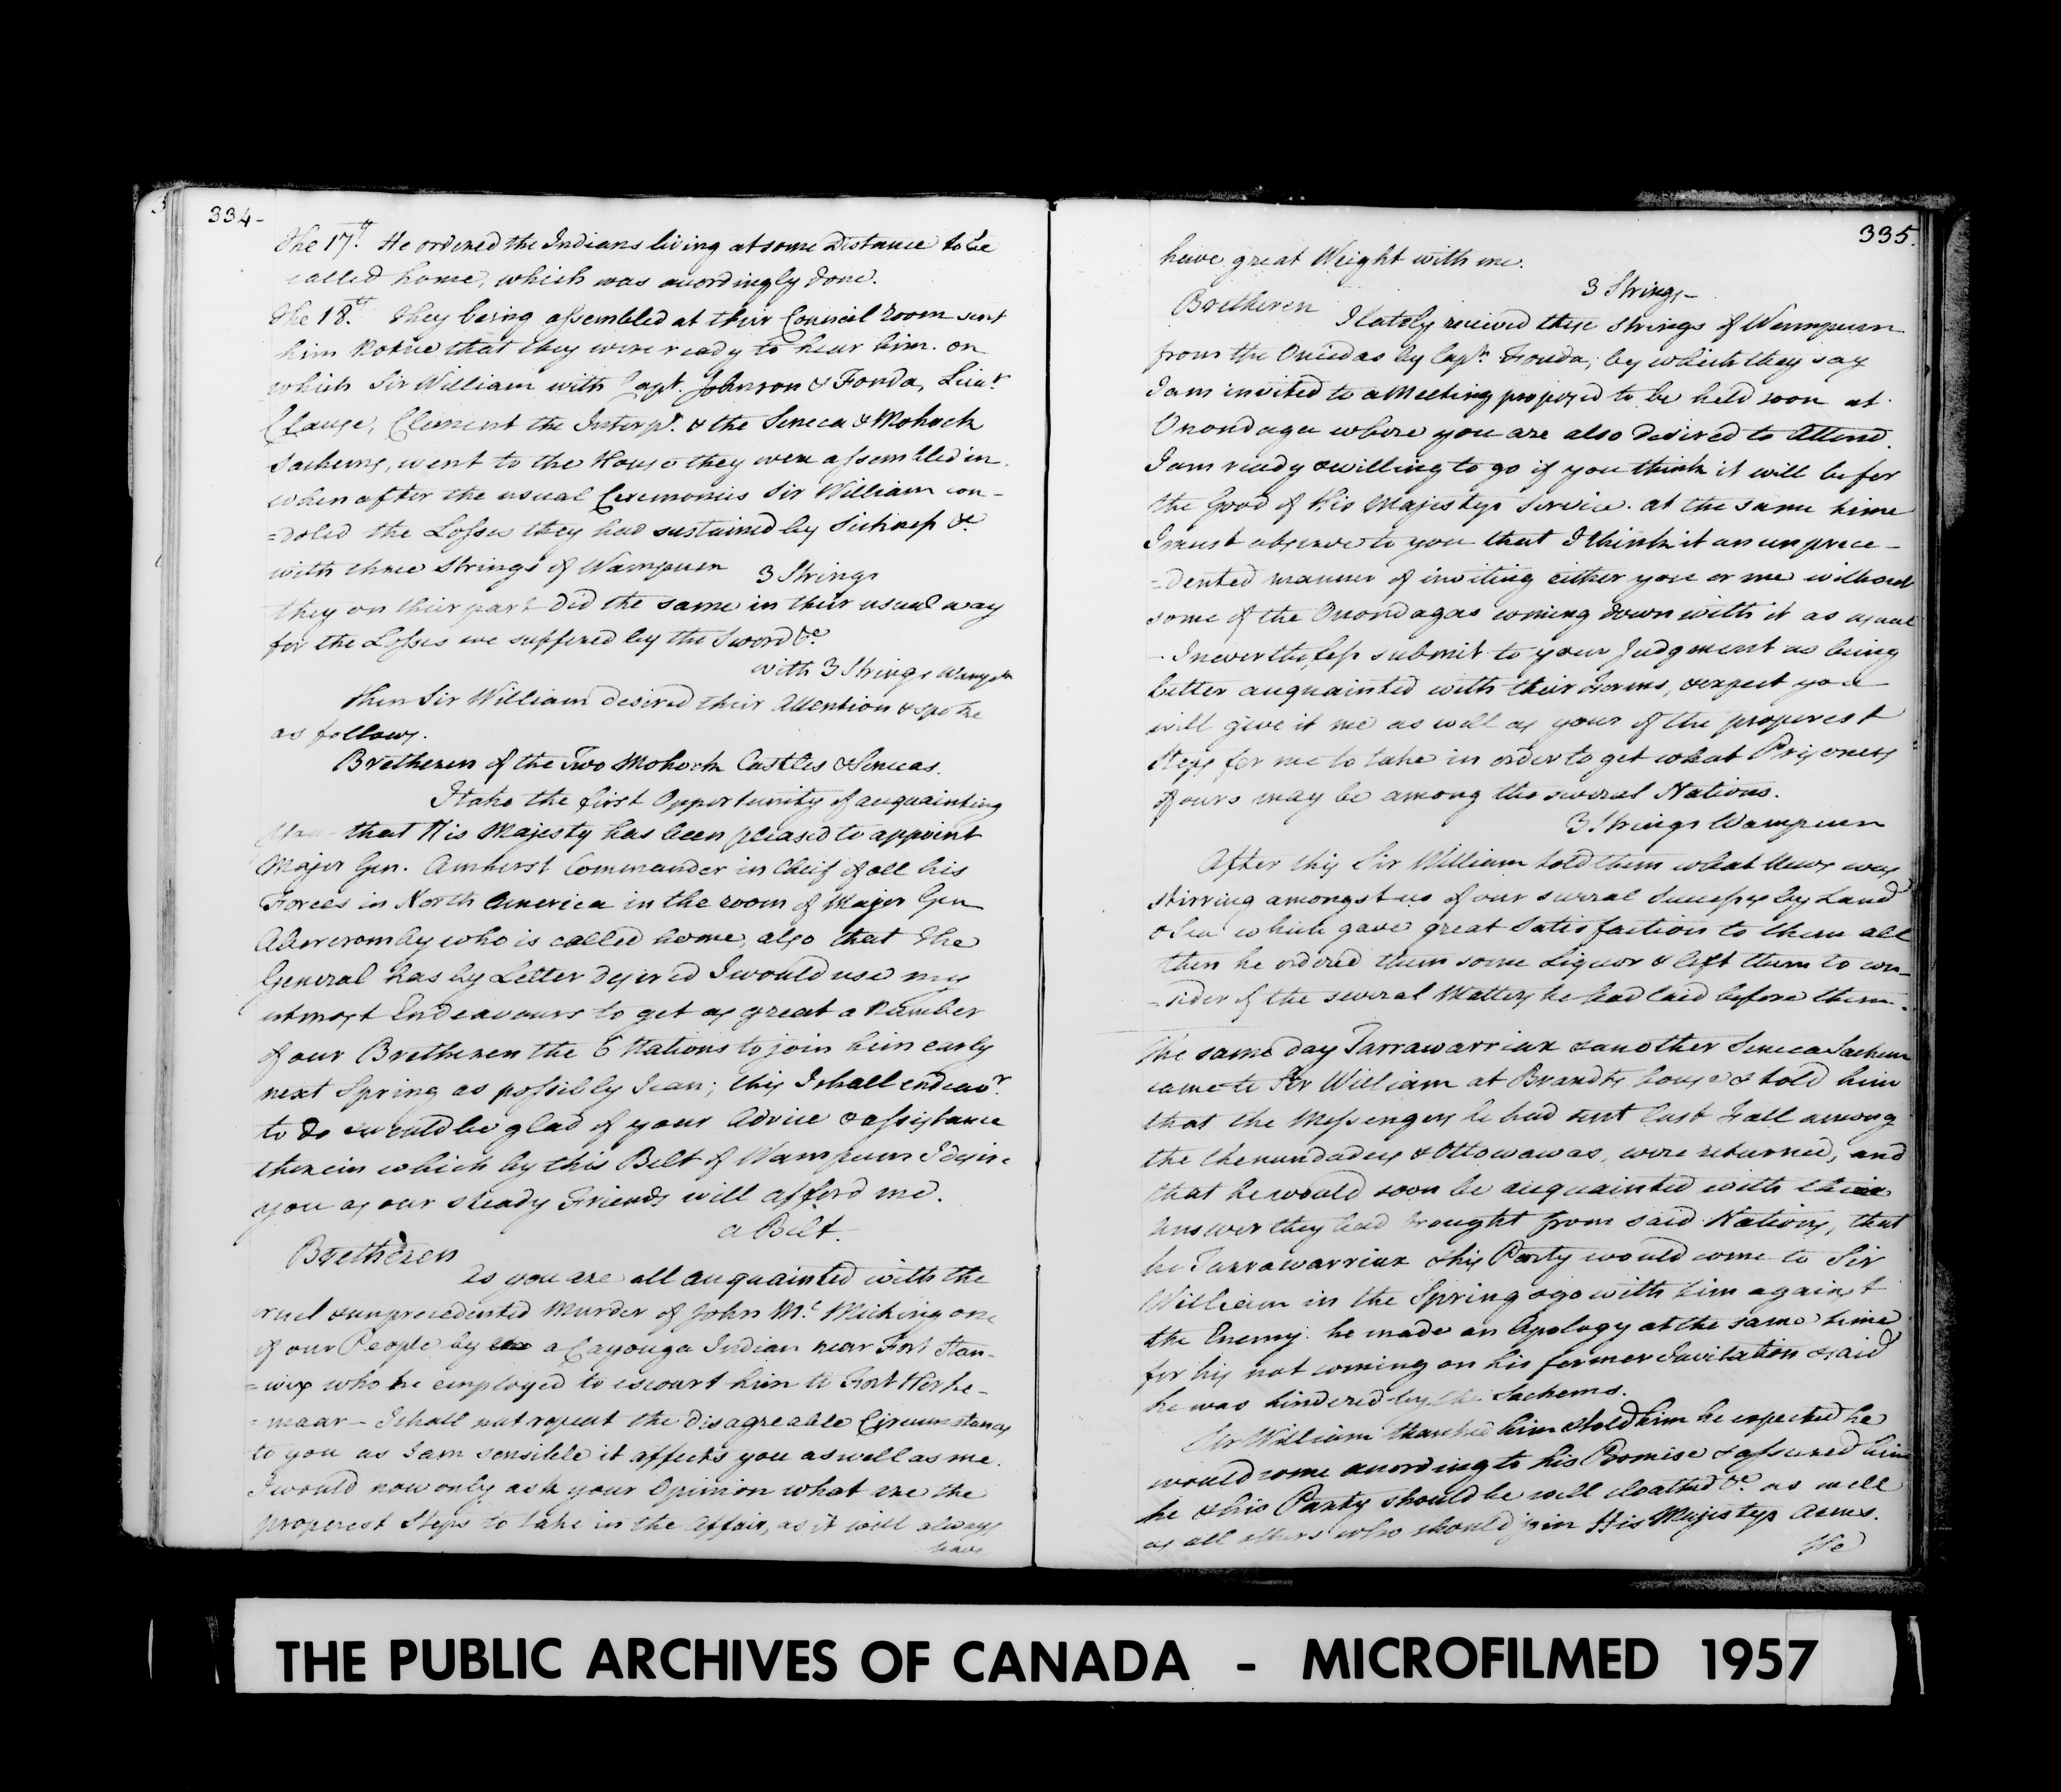 334-
The 17th. He ordered the Indians living at some Distance to be
called home, which was accordingly done.
The 18th. They being assembled at their Council room sent
him Notice that they were ready to hear him. on
which Sir William with Capt. Johnson & Fonda, Lieut.
Clause, Clement the Interpr. & the Seneca & Mohock
Sachems, went to the House they were assembled in.
when after the usual Ceremonies Sir William con-
=doled the Losses they had sustained by Sickness &c
with three Strings of Wampum 3 Strings
they on their part did the same in their usual way
for the Losses we suffered by the Sword &c
with 3 Strings Wampm
Then Sir William desired their Attention & spoke
as follows.
Bretheren of the Two Mohock Castles & Senecas.
I take the first Opportunity of acquainting
You that His Majesty has been pleased to appoint
Major Gen. Amherst Commander in Cheif of all his
Forces in North America in the room of Major Gen
Abercromby who is called home, also that the
General has by Letter desired I would use my
utmost Endeavours to get as great a Number
of our Bretheren the 6 Nations to join him early
next Spring as possibly I can; this I shall endeavr.
to do & would be glad of your Advice & assistance
therein which by this Belt of Wampum I desire
you as our steady Friends will afford me.
a Belt.
Bretheren
As you are all acquainted with the
cruel & unprecedented Murder of John Mc. Miching one
of our People by a Cayouga Indian near Fort Stan-
=wix who he employed to escourt him to Fort Herke-
=maar- I shall not repeat the disagreable Circumstances
to you as I am sensible it affects you as well as me.
I would now only ask your Opinion what are the
properest Steps to take in the Affair, as it will always
have
335.
have great Weight with me.
3 Strings-
Bretheren
I lately recieved these Strings of Wampum
from the Oneidas by Capt. Fonda, by which they say
I am invited to a Meeting proposed to be held soon at
Onondaga where you are also desired to Attend.
I am ready & willing to go if you think it will be for
the Good of His Majestys Service. at the same time
I must observe to you that I think it an unprece-
=dented manner of inviting either you or me without
some of the Onondagas coming down with it as usual
I nevertheless submit to your Judgment as being
better acquainted with their forms, & expect you
will give it me as well as yours of the properest
Steps for me to take in order to get what Prisoners
of ours may be among the several Nations.
3 Strings Wampum
After this Sir William told them what News was
stirring amongst us of our several Successes by Land
& Sea which gave great Satisfaction to them all
then he ordered them some Liquor & left them to con-
=sider of the several Matters he had laid before them.
The same day Tarrawarriax & another Seneca Sachem
came to Sir William at Brandts house & told him
that the Messengers he had sent last Fall among
the Chenundadeys & Ottowawas, were returned, and
that he would soon be acquainted with
Answer they had brought from said Nations, that
he Tarrawarriax & his Party would come to Sir
William in the Spring & go with him against
the Enemy. he made an Apology at the same time
for his not coming on his former Invitation & said
he was hindered by the Sachems.
Sir William thanked him & told him he expected he
would come according to his Promise & assured him
he & his Party should be well cloathed &c. as well
as all others who should join His Majestys Arms.
He
THE PUBLIC ARCHIVES OF CANADA - MICROFILMED 1957